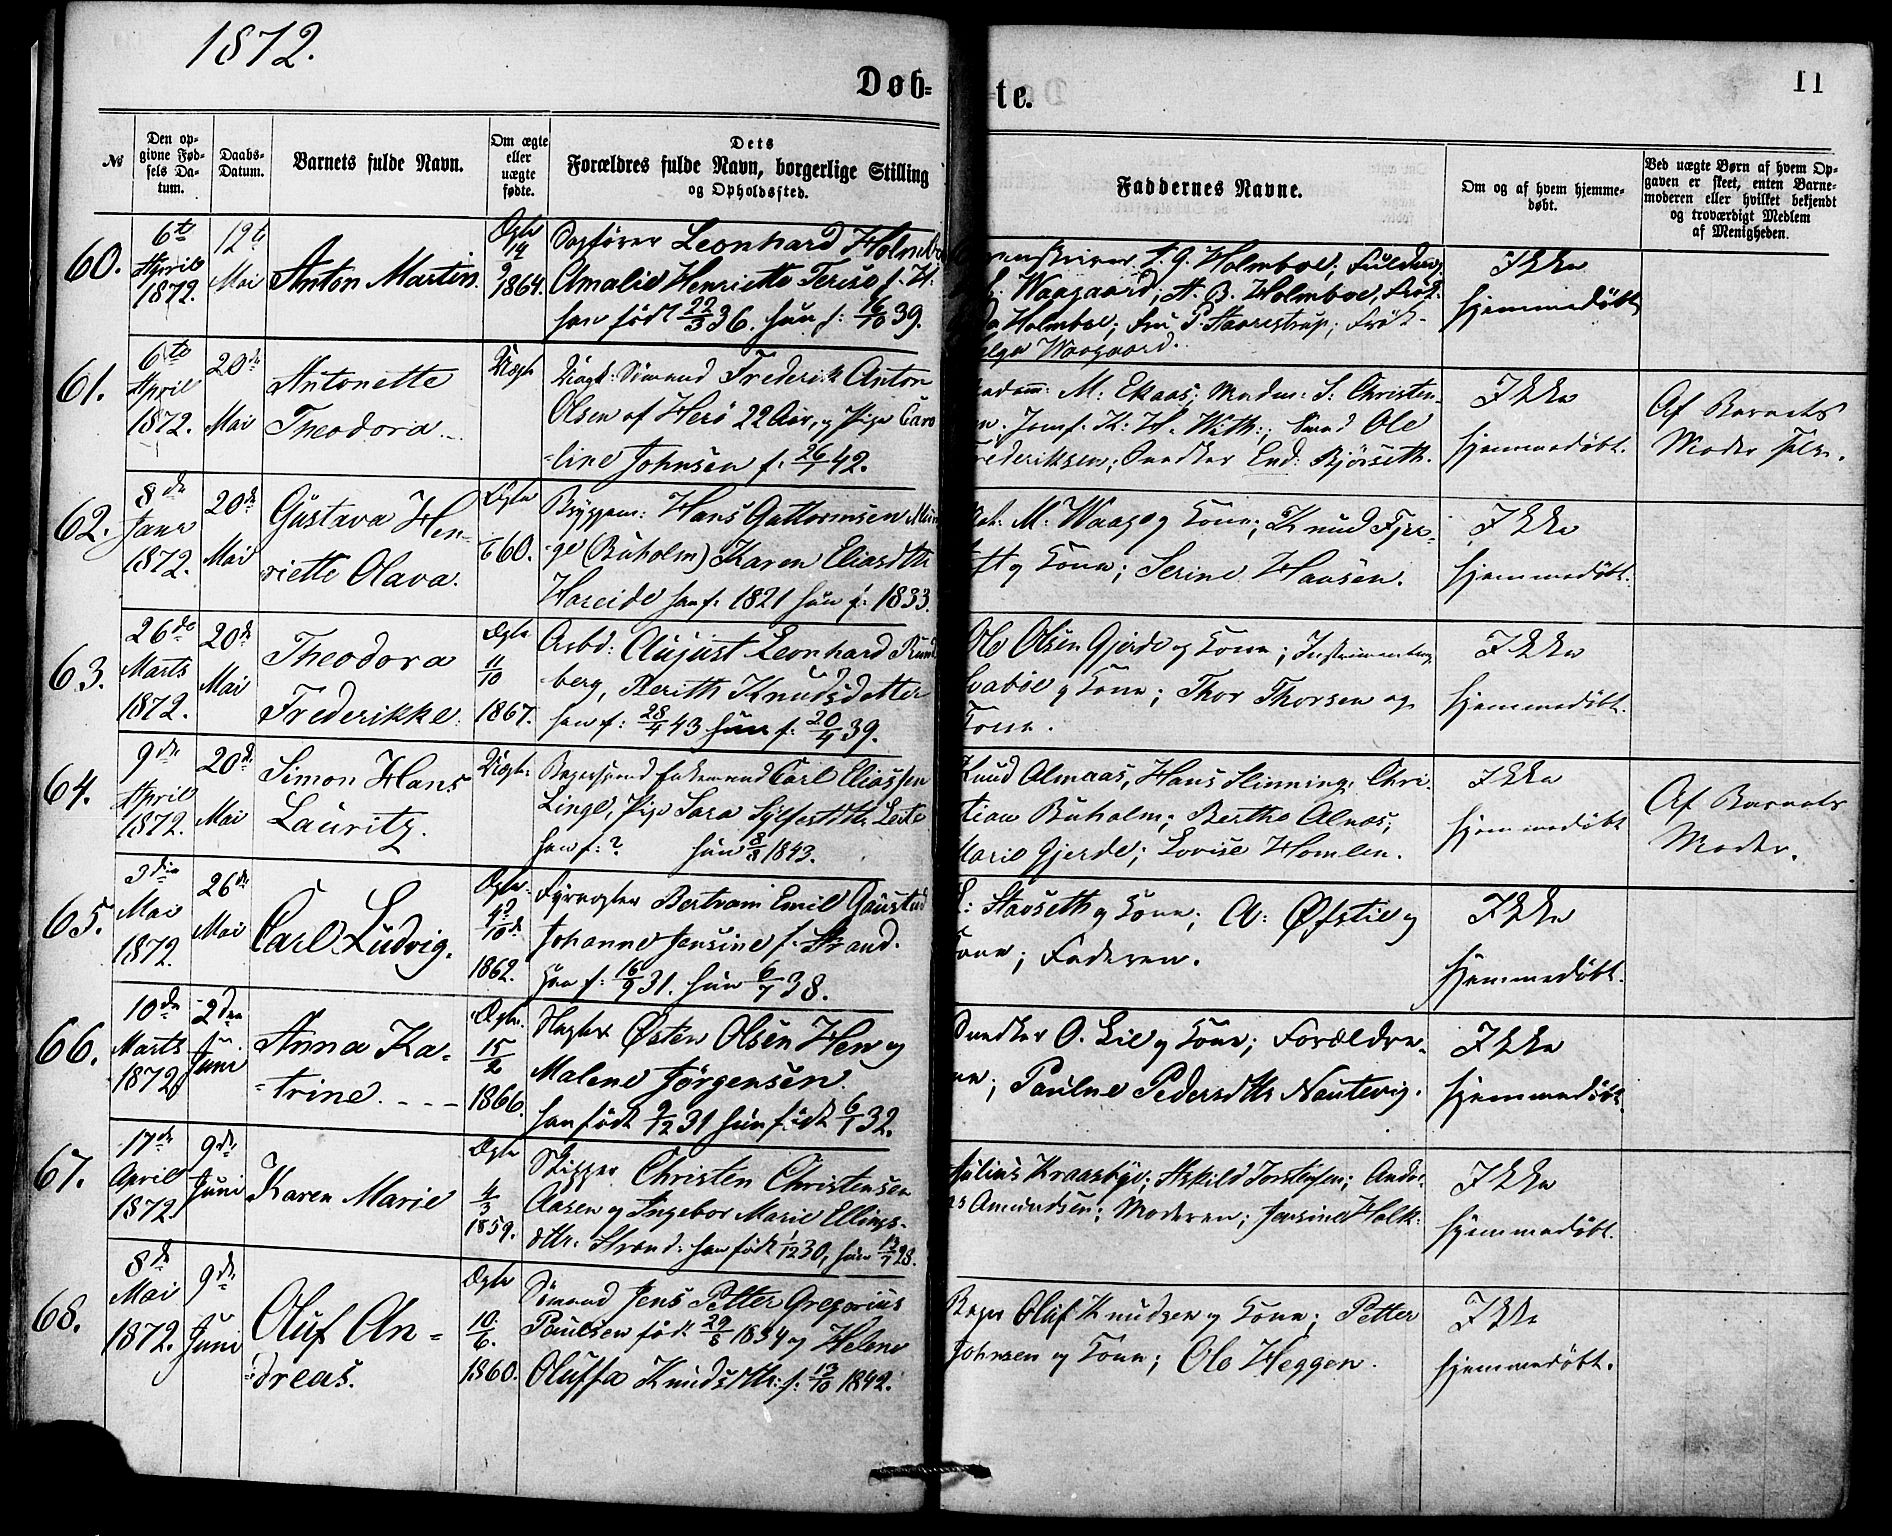 1872.
Døb=
te.
11
№
Den op=
givne Fød=
sels Da=
tum.
Daabs=
Datum.
Barnets fulde Navn.
Om ægte
eller
uægte
fødte.
Dets
Forældres fulde Navn, borgerlige Stilling
og Opholdssted.
Faddernes Navne.
Om og af hvem hjemme=
døbt.
Ved uægte Børn af hvem Op=
gaven er skeet, enten Barne=
moderen eller hvilket bekjendt
og troværdigt Medlem
af Menigheden.
60.
6te
April
1872.
12te
Mai
Anton Martin.
Ægte
19/9
1864.
Sagfører Leonhard Holmboe
Amalie Henriette Terese f. H.
han født 22/3 36. hun f: 16/10 39.
Holmboe; Fuldm:
Waagaard; A. B. Holmboe, Frøk:
Holmboe; Fru P. Staarestrup; Frøk-
Waagaard.
Ikke
hjemmedøbt
61.
6te
April
1872.
20de
Mai
Antonette
Theodora
Uægte
Uægt: Sømand Frederik Anton
Olsen af Herø 22 Aar, og Pige Caro
=line Johnsen f. 26/1 42.
M: Ekaas; Madm: S. Christen-
Jomf. K: H. With:; Smed Ole
rederiksen; Snedker End: Bjørseth.
Ikke
hjemmedøbt.
Af Barnets
Moder selv.
62.
8de
Janr
1872.
20de
Mai
Gustava Hen-
riette Olava.
Ægte
60.
Bryggem: Hans Guttormsen Mun
=ge (Buholm) Karen Eliasdtr
Hareide han f. 1821 hun f. 1833.
M: Waage og Kone; Knud Fjør-
toft og Kone; Serine Hansen.
Ikke
hjemmedøbt.
63.
26de
Marts
1872.
20de
Mai
Theodora
Frederikke.
Ægte
11/10
1867.
Arbd: August Leonhard Rund
=berg, Berith Knudsdatter
han f: 28/4 43 hun f. 20/4 39.
Ole Olsen Gjerde og Kone; Instrumentm
Svabøe og Kone; Thor Thorsen og
Kone.
Ikke
hjemmedøbt.
64.
9de
April
1872.
20de
Mai
Simon Hans
Lauritz.
Uægte
Bagersvend Enkemand Carl Eliassen
Linge, Pige Sara Sylfestdtr Leite
han f: ? hun 8/8 1843.
Knud Almaas, Hans Slinning, Chri-
stian Buholm; Berthe Alnæs;
Marie Gjerde; Lovise Homlen.
Ikke
hjemmedøbt
Af Barnets
Moder.
65.
3die
Mai
1872.
26de
Mai
Carl Ludvig.
Ægte
1862.
Fyrvogter Bertram Emil Gaustad
Johanne Jensine f. Strand.
han f: 16/9 31. hun 6/7 38.
Stavseth og Kone; A: Øfstie og
Kone; Faderen.
Ikke
hjemmedøbt.
66.
10de
Marts
1872
2den
Juni
Anna Ka-
=trine.
Ægte
15/2
1866.
Slagter Østen Olsen Hen og
Malene Jørgensen.
han født 9/12 31 hun født 6/1 32.
Snedker O. Lie og Kone; Forældre-
ne; Pauline Pedersdtr Nautevig.
Ikke
hjemmedøbt.
67.
17de
April
1872
9de
Juni
Karen Marie
Ægte
4/3
1859.
Skipper Christen Christensen
Aasen og Ingebor Marie Ellings-
dtr. Strand: han født 1/12 30, hun 13/7 28.
Julius Kraasbye; Askild Torsteinsen; Andr-
Amundsen; Moderen; Jensine Holk:
Ikke
hjemmedøbt.
68.
8de
Mai
1872.
9de
Juni
Oluf An=
=dreas.
Ægte
10/6
1860.
Sømand Jens Petter Gregorius
Paulsen født 29/8 1834 og Helene
Oluffa Knudsdtr: f. 13/10 1842.
Bager Oluf Knudsen og Kone; Petter
Johnsen og Kone; Ole Heggen.
Ikke
hjemmedøbt.